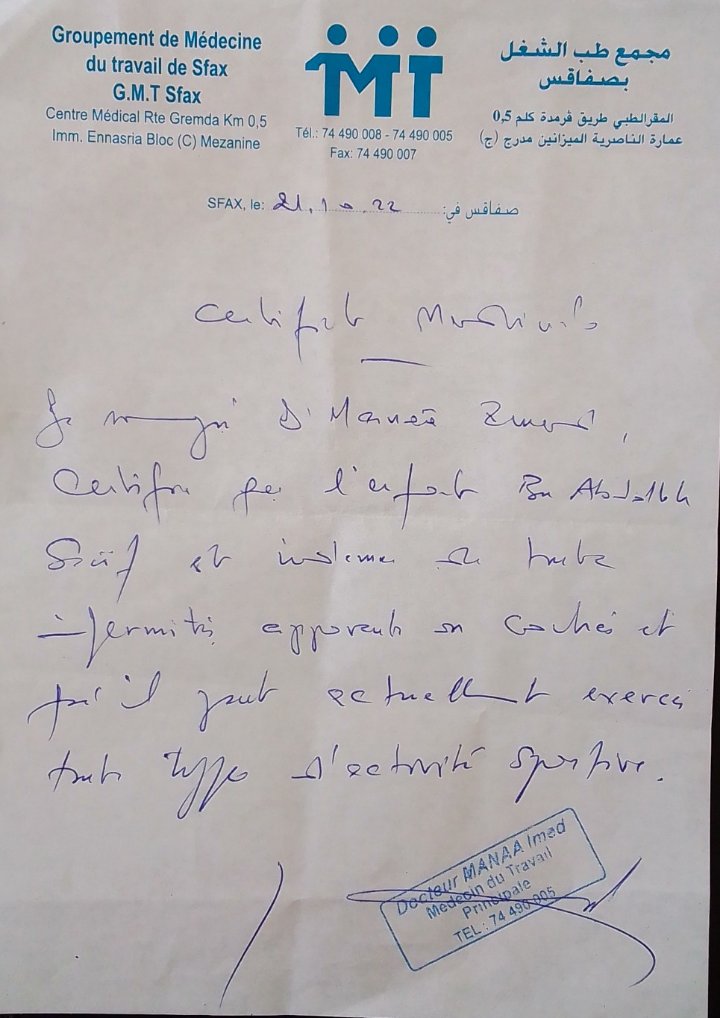 Groupement de Médecine
du travail de Sfax
G.M.T Sfax
Centre Médical Rte Gremda Km 0,5
Imm. Ennasria Bloc (C) Mezanine
GMT
Tél.: 74 490 008 - 74 490 005
Fax: 74 490 007
مجمع طب الشغل
بصفاقس
المقر الطبي طريق قرمدة كلم 0,5
عمارة الناصرية الميزانين مدرج (ج)
SFAX, le: 21.10.22 صفاقس في:
Certificat
Je D'
Certifie que l'enfant Ben Abdallah
Seif est indemne de toute
infirmités apparente ou cachés et
qu'il peut actuellement exercer
toute type d'activité sportive.
Docteur MANAA Imed
Médecin du Travail
Principale
TEL : 74 490 005